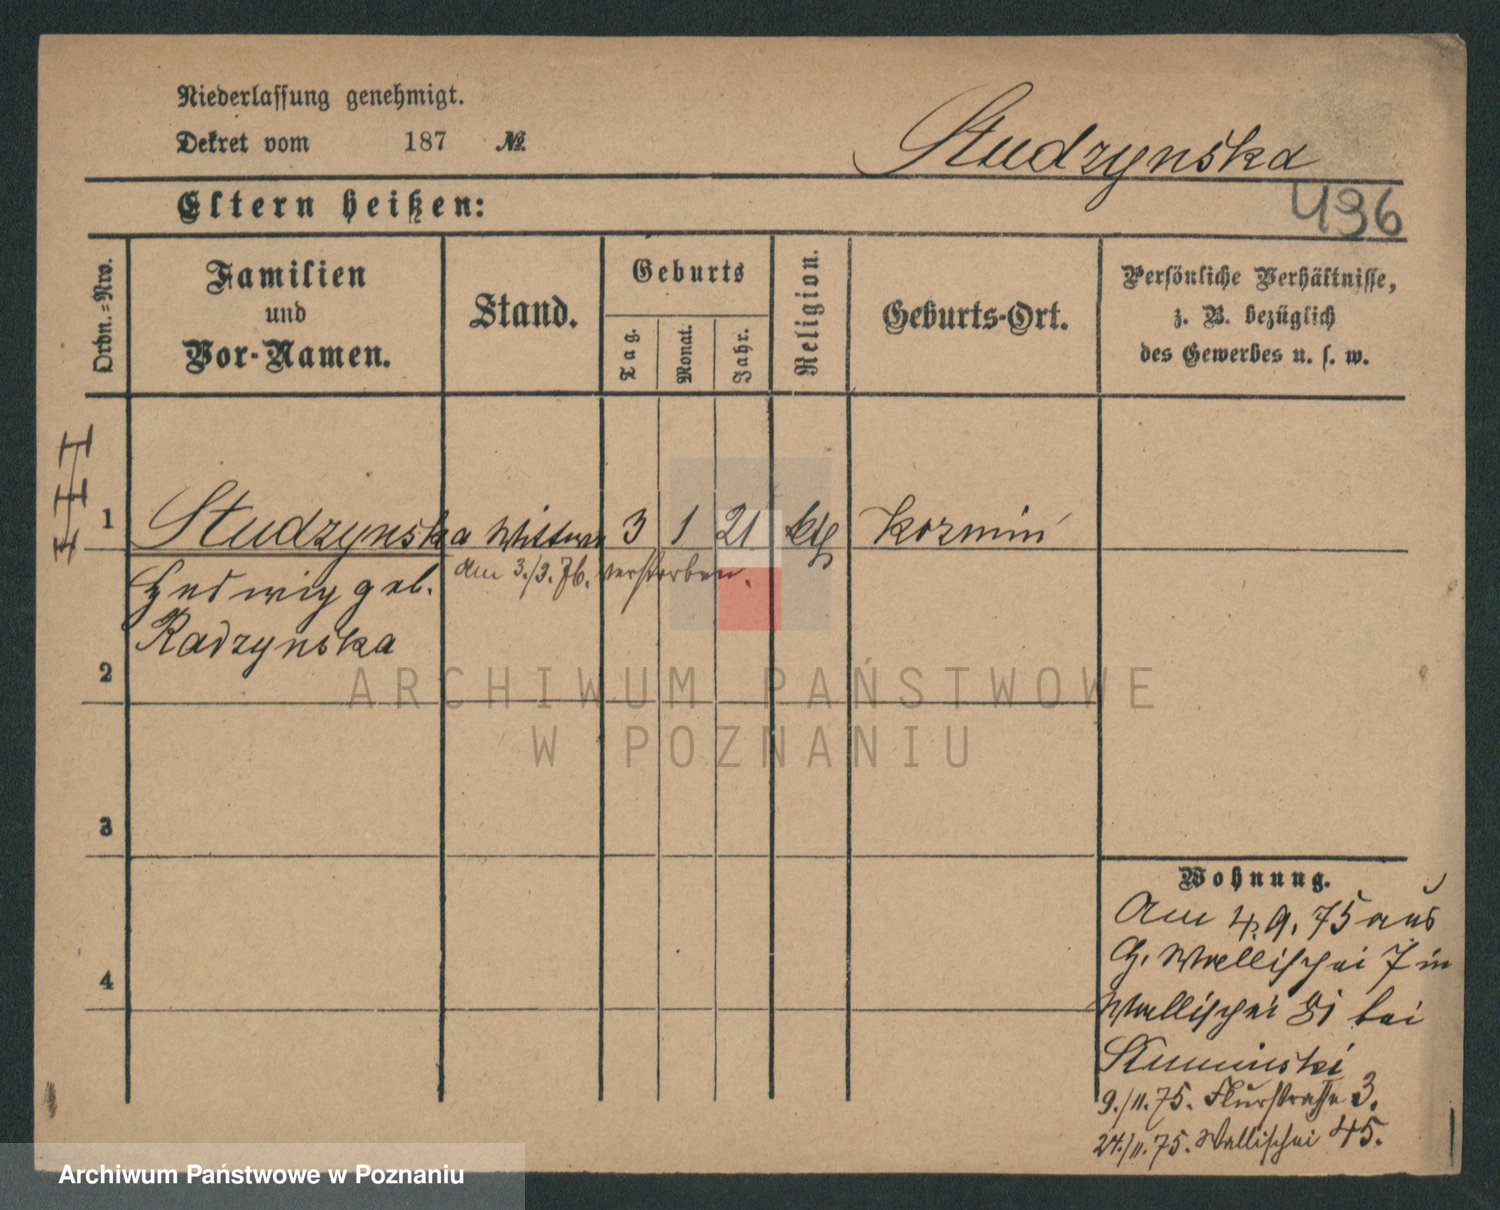 Niederlassung genehmigt.
Dekret vom 187 №
Studzynska
Eltern heißen:
436
Ordn.-Nro.
Familien
und
Vor-Namen.
Stand.
Geburts
Tag.
Monat.
Jahr.
Religion.
Geburts-Ort.
Persönliche Verhältnisse,
z. B. bezüglich
des Gewerbes u. s. w.
1 Studzynska Wittwe 3 1 21 kth Kozmin
Hedwig geb. am 3./3. 76. verstorben.
Radzynska
2
ARCHIWUM PAŃSTWOWE
W POZNANIU
3
Wohnung.
Am 4. 9. 75 aus
G. Wallischei 7 in
4
Wallischei 81 bei
9./11. 75. Flurstrasse 3.
24./11. 75. Wallischei 45.
Archiwum Państwowe w Poznaniu